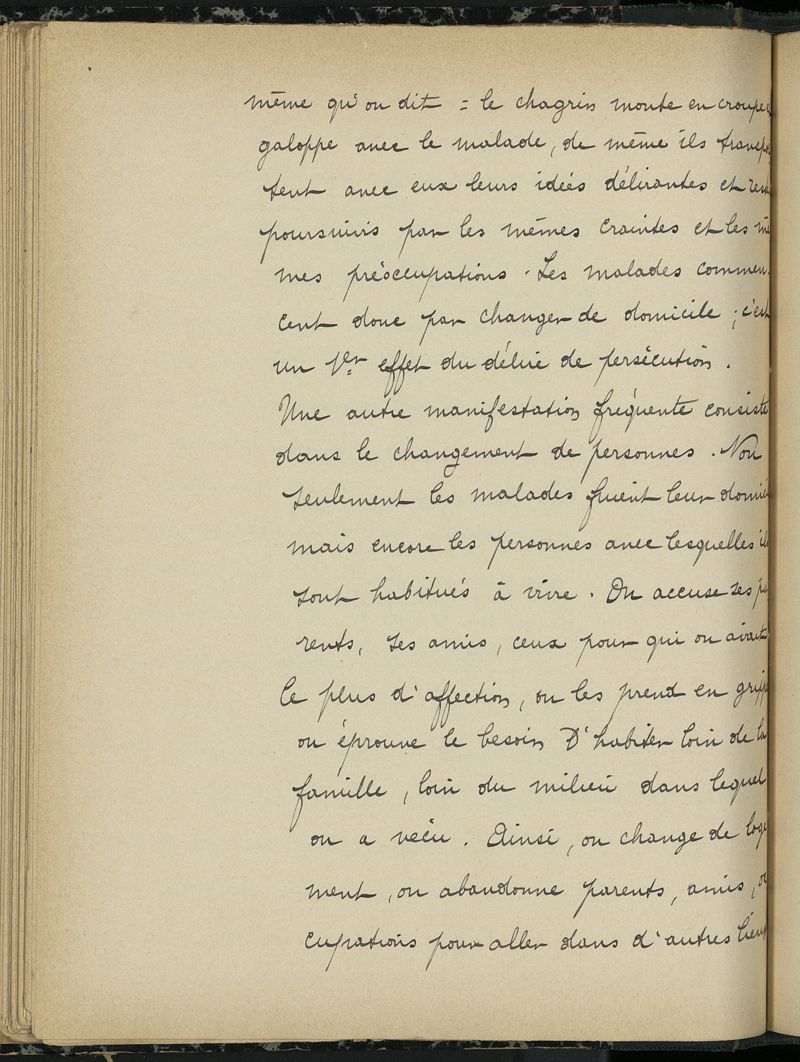 même qu'on dit = le chagrin monte en croupe e
galoppe avec le malade, de même ils transpo
tent avec eux leurs idées délirantes et rest
poursuivis par les mêmes craintes et les mê
mes préoccupations. Les malades commen-
cent donc par changer de domicile ; c'est
un 1er effet du délire de persécution.
Une autre manifestation fréquente consiste
dans le changement de personnes. Non
seulement les malades fuient leur domici
mais encore les personnes avec lesquelles ils
sont habitués à vivre. On accuse ses pa
rents, ses amis, ceux pour qui on avait
le plus d'affection, on les prend en gripp
on éprouve le besoin D'habiter loin de la
famille, loin du milieu dans lequel
on a vécu. Ainsi, on change de loge
ment, on abandonne parents, amis, oc
cupations pour aller dans d'autres lieux